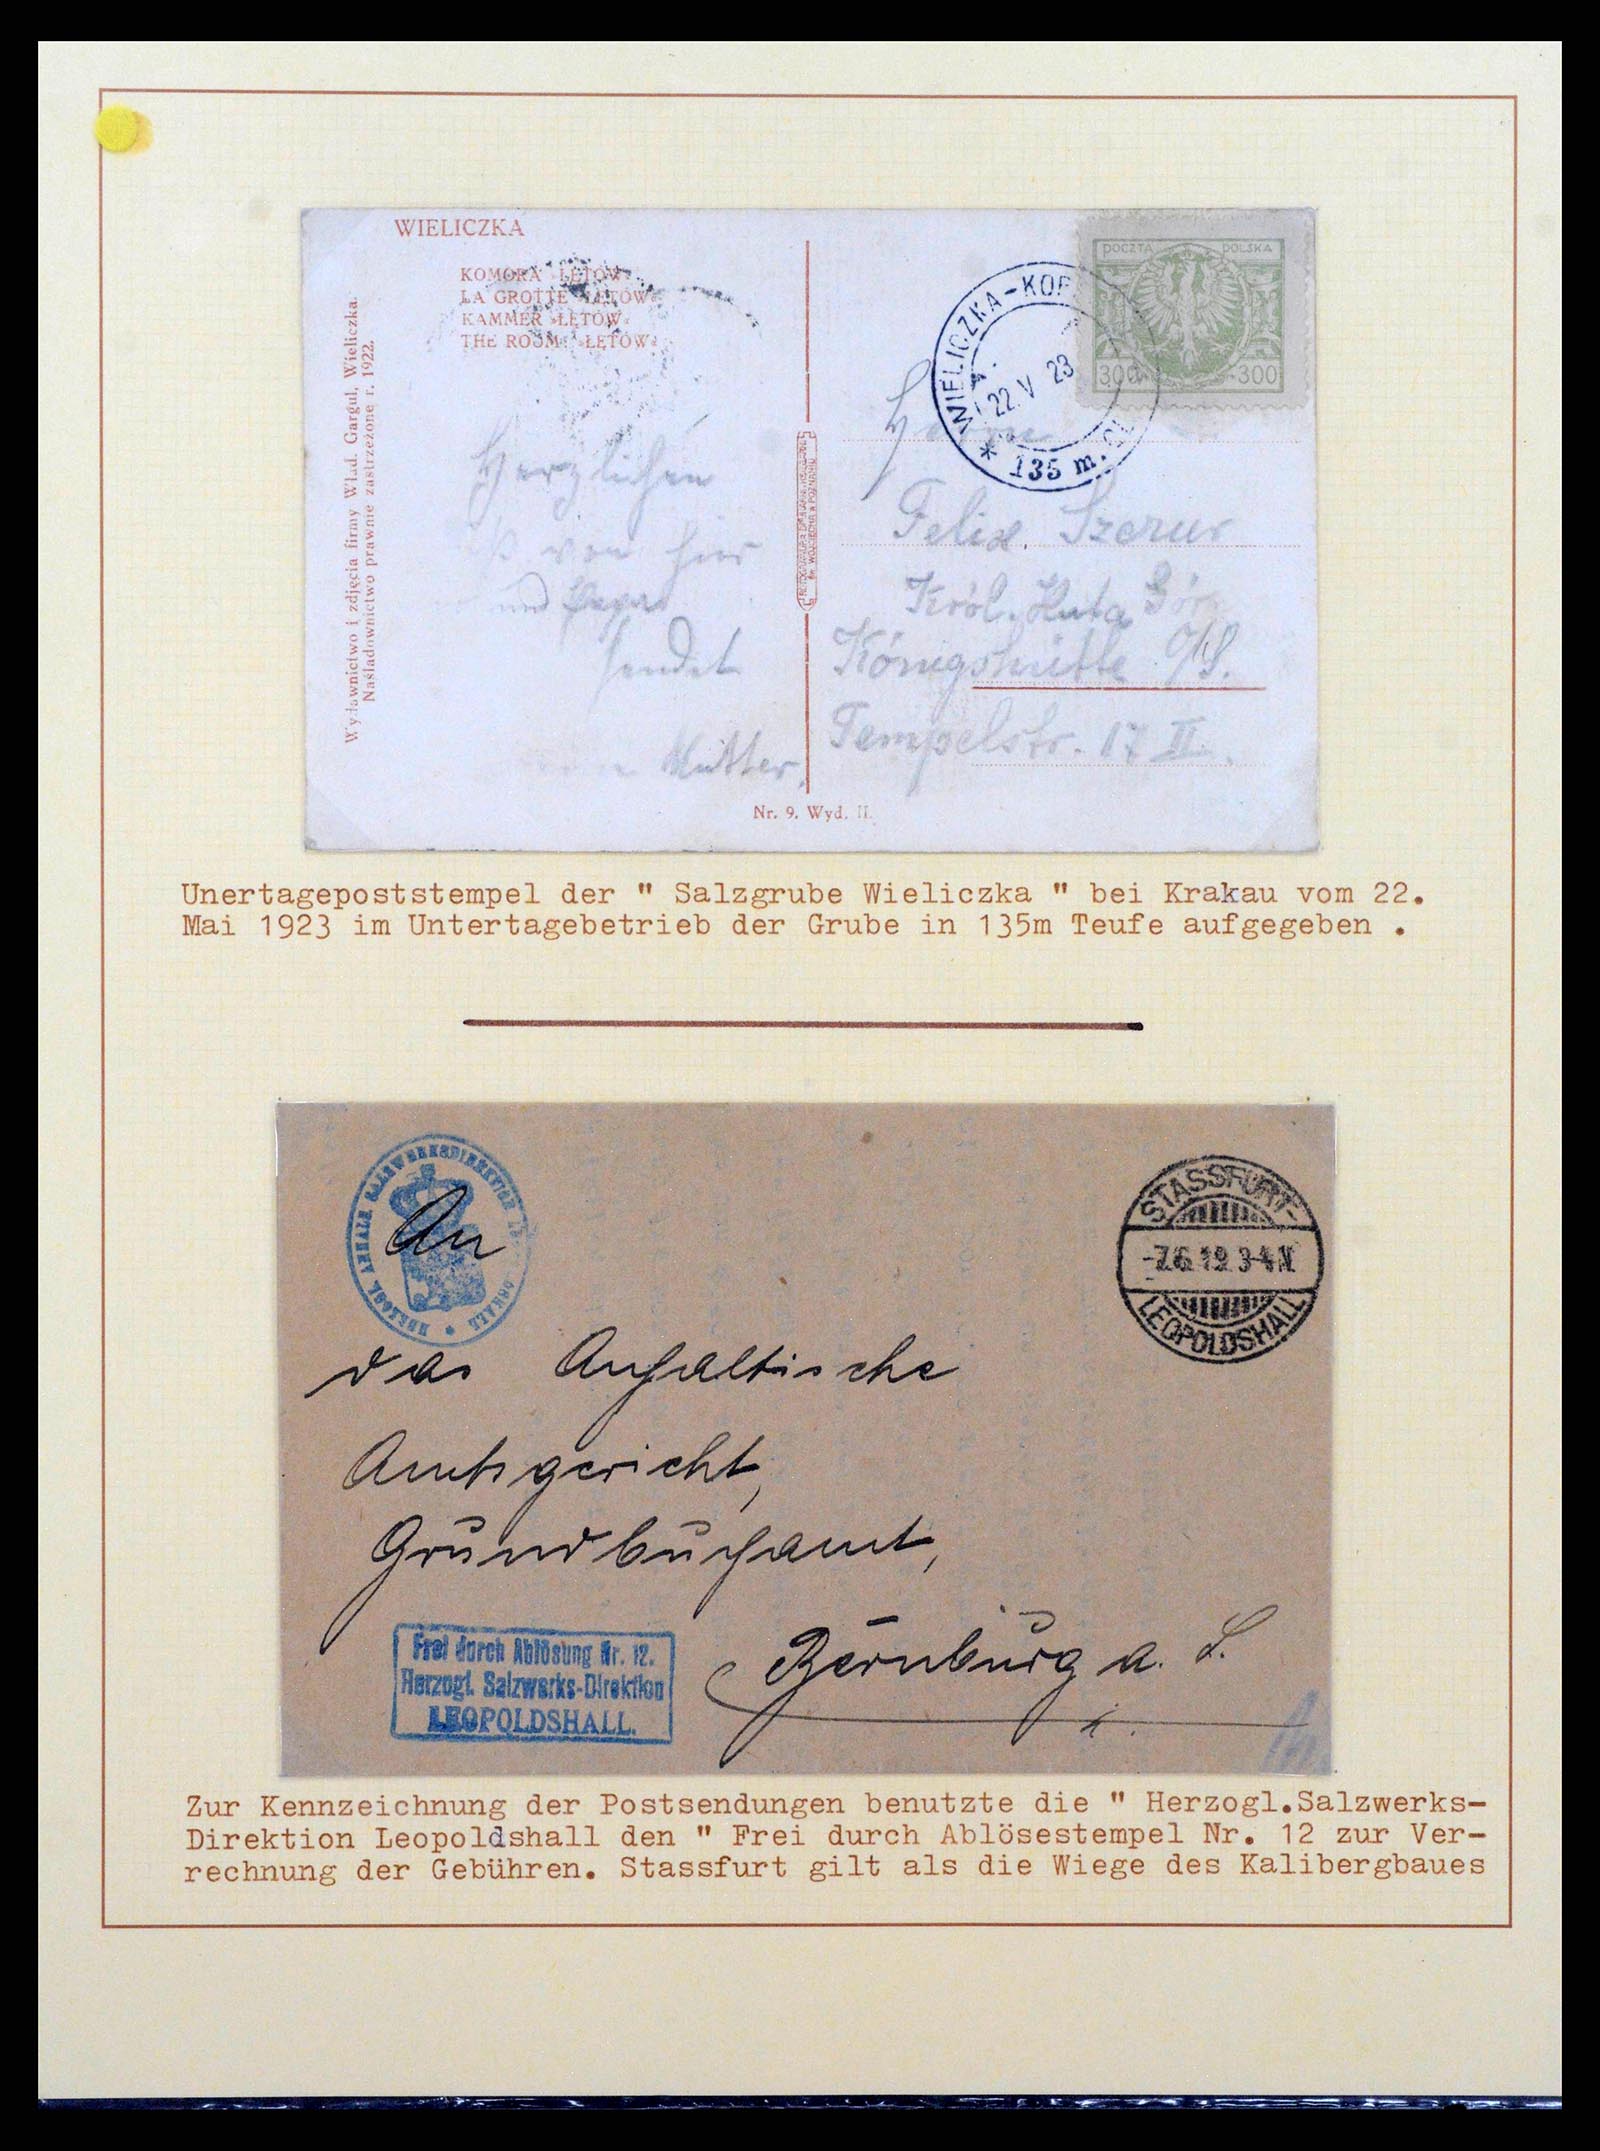 WIELICZKA
KOMORA »ŁĘTÓW«
LA GROTTE »ŁĘTÓW«
KAMMER »ŁĘTÓW«
THE ROOM »ŁĘTÓW«
Wydawnictwo i zdjęcia firmy Wład. Gargul, Wieliczka.
Naśladownictwo prawnie zastrzeżone r. 1922.
POCZTA POLSKA
300 300
* WIELICZKA-KOP
22. V 23
135 m.
Herzlichen
von hier
und
sendet
Mutter.
Herrn
Felix Szczur
Król. Huta
Königshütte O/S.
Tempelstr. 17 II.
Nr. 9. Wyd. II.
Unertagepoststempel der " Salzgrube Wieliczka " bei Krakau vom 22.
Mai 1923 im Untertagebetrieb der Grube in 135m Teufe aufgegeben .
HERZOGL ANHALT SALZWERKSDIREKTION
STASSFURT-
-7.6.19. 3-4 N
LEOPOLDSHALL
An
das Anhaltische
Amtsgericht,
Grundbuchamt,
Bernburg a. S.
Frei durch Ablösung Nr. 12.
Herzogl. Salzwerks-Direktion
LEOPOLDSHALL.
Zur Kennzeichnung der Postsendungen benutzte die " Herzogl.Salzwerks-
Direktion Leopoldshall den " Frei durch Ablösestempel Nr. 12 zur Ver-
rechnung der Gebühren. Stassfurt gilt als die Wiege des Kalibergbaues